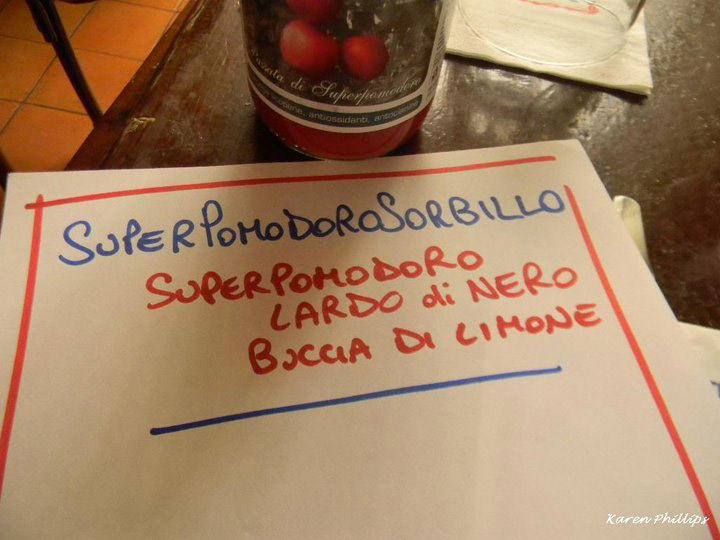 di Superpomodoro
antiossidanti, antocianine
SUPERPOMODOROSORBILLO
SUPERPOMODORO
LARDO di NERO
BUCCIA DI LIMONE
Karen Phillips